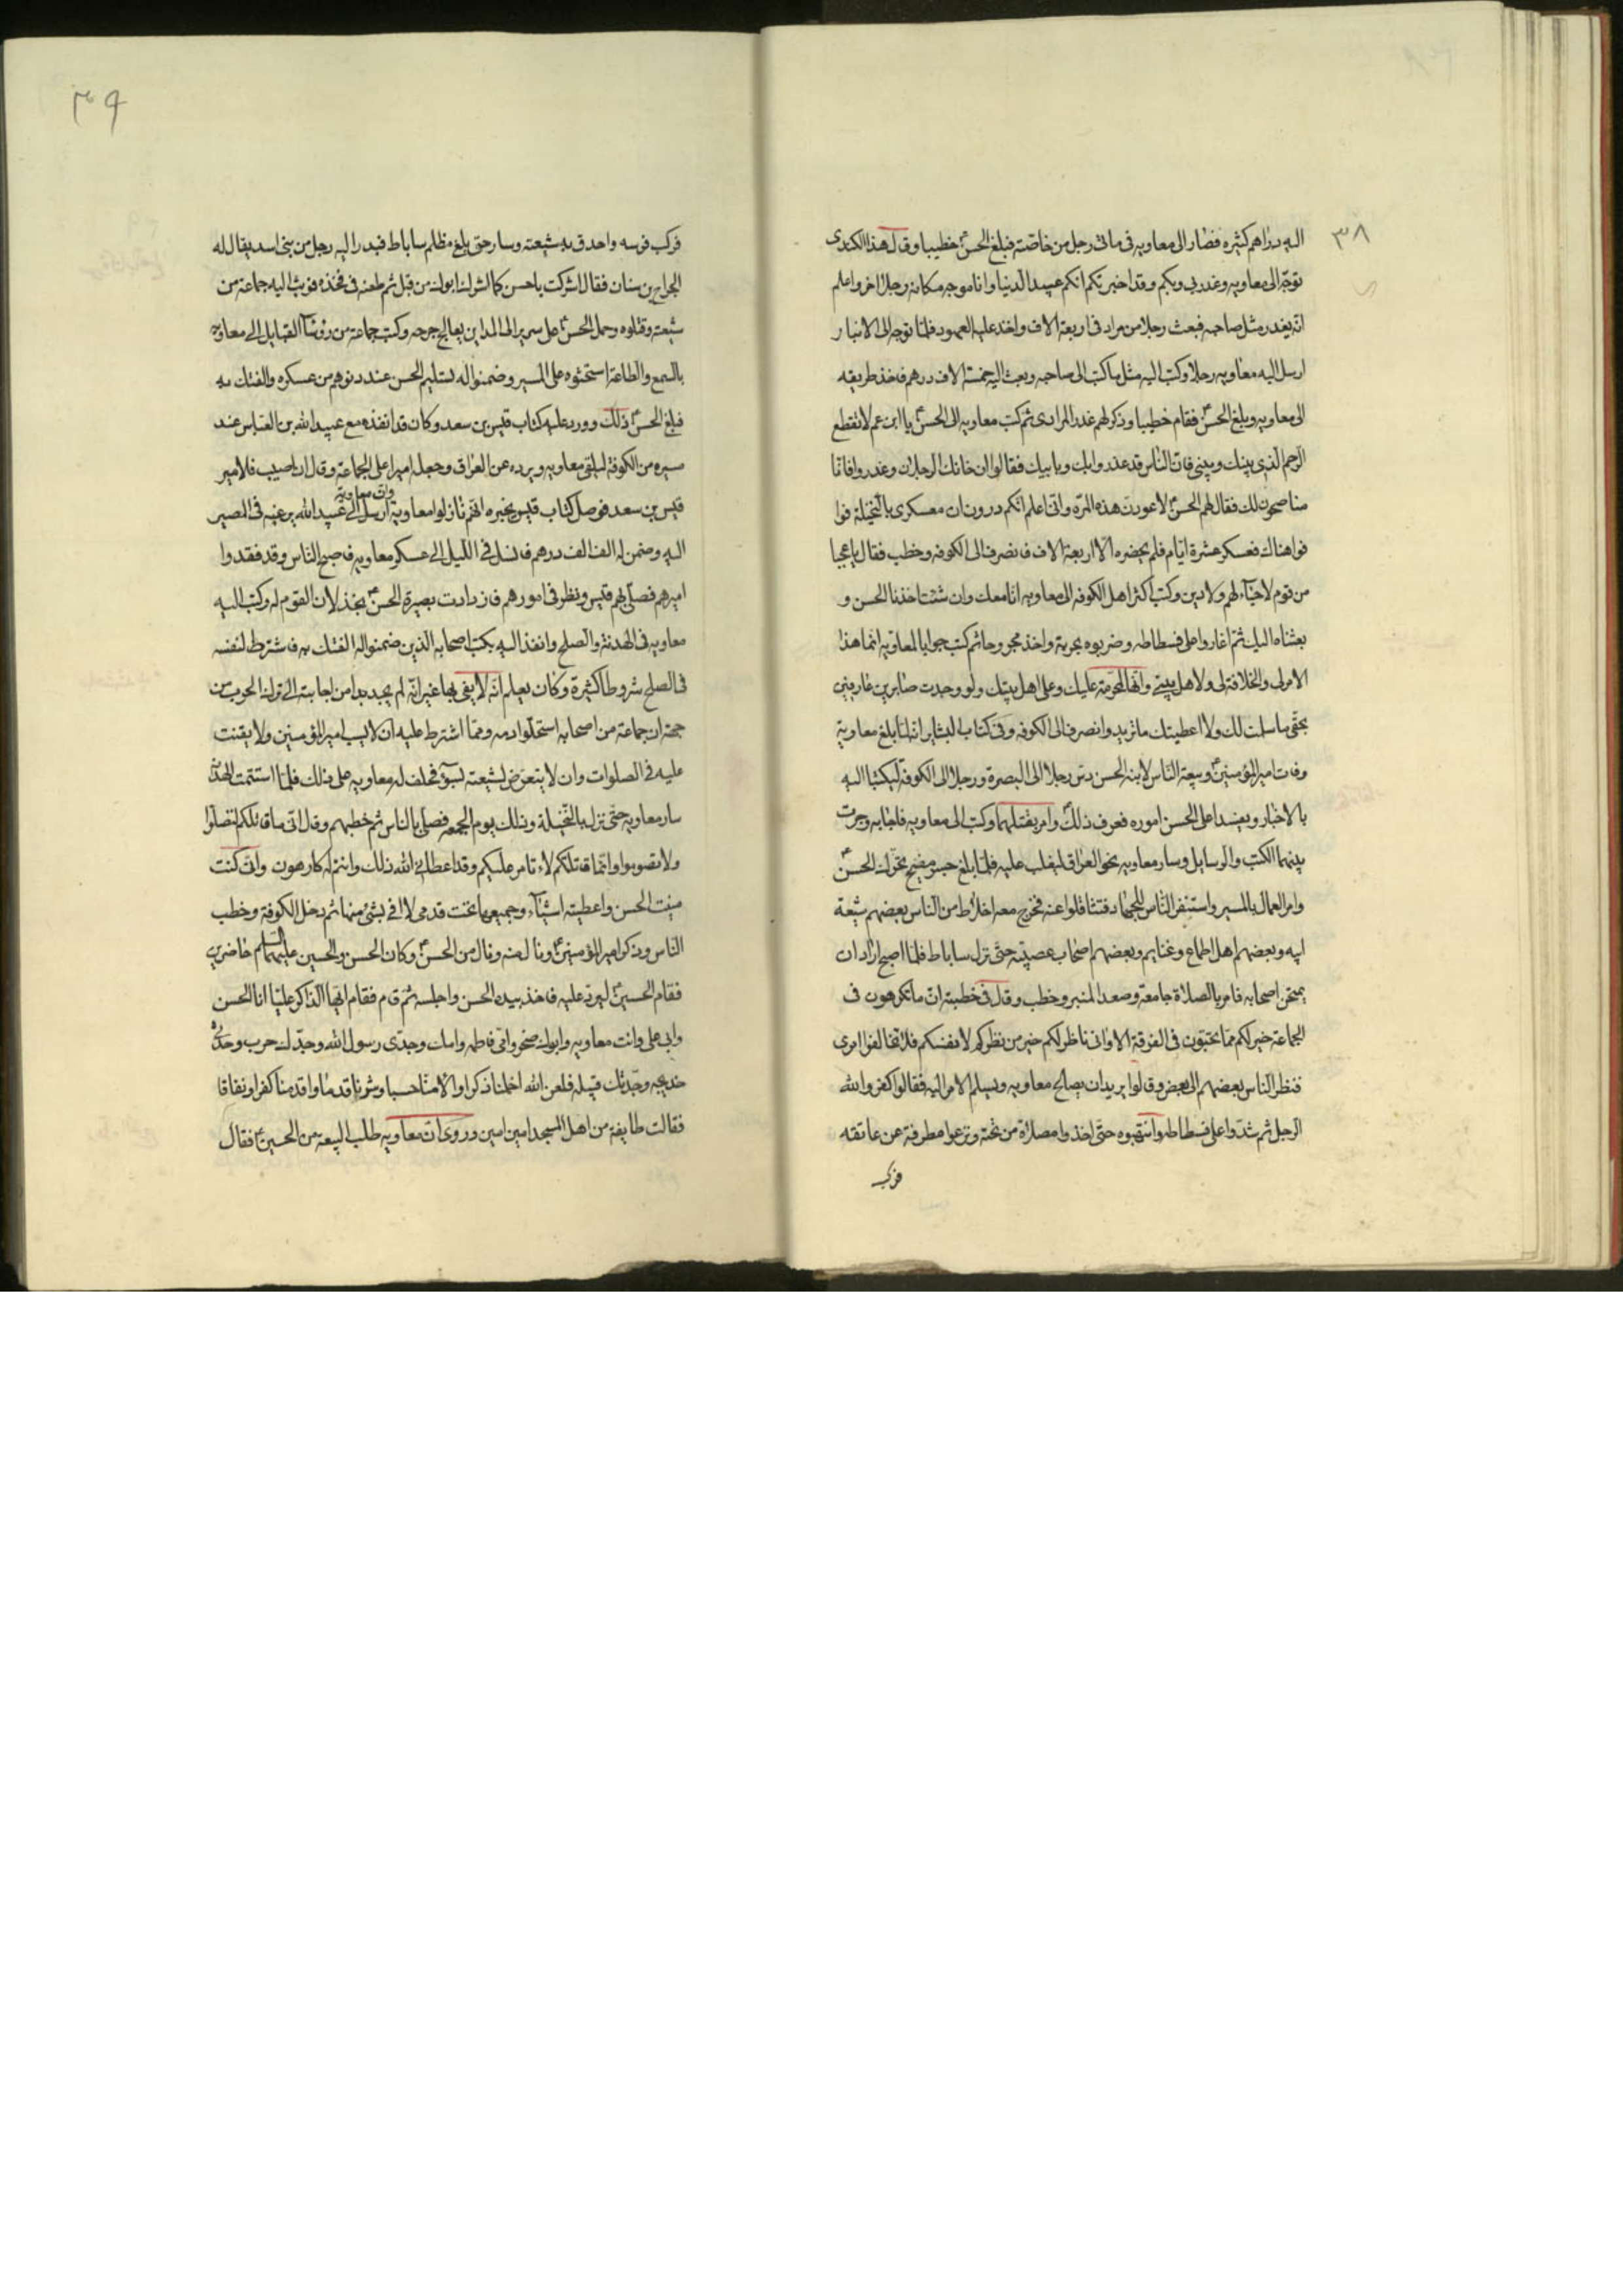 ٣٨
اليه دراهم كثيره فصار الى معاويه فى مائتى رجل من خاصّته فبلغ الحسنؑ خطيبا وقال هذا الكندى
توجّه الى معاويه وغدر بى وبكم وقد اخبرتكم انكم عبيد الدنيا وانا موجه مكانه رجلا اخر واعلم
انّه يغدر مثل صاحبه فبعث رجلا من مراد فى اربعة الاف واخذ عليه العهود فلمّا توجه الى الانبار
ارسل اليه معاويه رجلا وكتب اليه مثل ما كتب الى صاحبه وبعث اليه خمسة الاف درهم فاخذ طريقه
الى معاويه وبلغ الحسنؑ فقام خطيبا وذكر لهم غدر المرادى ثم كتب معاويه الى الحسنؑ يا ابن عم لا تقطع
الرّحم الذى بينك وبينى فانّ الناس قد غدروا بك وبابيك فقالوا ان خانك الرجلان وغدروا فانا
مناصحون لك فقال لهم الحسنؑ لاعودنّ هذه المرّه وانى اعلم انكم درونان معسكرى بالنّخيلة فوا
فواهناك فعسكر عشرة ايّام فلم يحضره الا اربعة الاف فانصرف الى الكوفه وخطب فقال يا عجبا
من قوم لا حياء لهم ولا دين وكتب اكثر اهل الكوفه الى معاويه انا معك وان شئت اخذنا الحسن و
بعثناه اليك ثمّ اغاروا على فسطاطه وضربوه بحربة واخذ مجروحا ثم كتب جوابا لمعاويه انّما هذا
الامر لى والخلافة لى ولاهل بيتى وانّها لمحرّمة عليك وعلى اهل بيتك ولو وجدت صابرين عارفين
بحقّى ما سلمت لك ولا اعطيتك ما تريد وانصرف الى الكوفه وفى كتاب البشاير انه لمّا بلغ معاوية
وفات امير المؤمنينؑ وبيعة الناس لابنه الحسن دسّ رجلا الى البصرة ورجلا الى الكوفة ليكتبا اليه
بالاخبار ويفسدا على الحسن اموره فعرف ذلكؑ وامر بقتلهما وكتب الى معاويه فاجابه وجرت
بينهما الكتب والرسايل وسار معاويه نحو العراق ليغلب عليه فلمّا بلغ جسر منبج تحرّك الحسنؑ
وامر العمال بالمسير واستنفر النّاس للجهاد فتثاقلوا عنه فخرج معه اخلاط من الناس بعضهم شيعة
ابيه وبعضهم اهل اطماع وغنايم وبعضهم اصحاب عصبيّة حتّى نزل ساباط فلمّا اصبح اراد ان
يمتحن اصحابه فامر بالصلاة جامعة وصعد المنبر وخطب وقال فى خطبته ان ما تكرهون فى
الجماعة خير لكم ممّا تحبّون فى الفرقة الا وانى ناظر لكم خير من نظركم لانفسكم فلا تخالفوا امرى
فنظر الناس بعضهم الى بعض وقالوا يريد ان يصالح معاويه ويسلم الامر اليه فقالوا كفر والله
الرّجل ثم شدّوا على فسطاطه وانتهبوه حتّى اخذوا مصلاه من تحته ونزعوا مطرفة عن عاتقه
فركب
٣٩
فركب فرسه واحدق به شيعته وسار حتى بلغ مظلم ساباط فبدر اليه رجل من بنى اسد يقال له
الجراح بن سنان فقال اشركت يا حسن كما اشرك ابوك من قبل ثم طعنه فى فخذه فوثب اليه جماعة من
شيعته وقتلوه وحمل الحسنؑ على سرير الى المداين يعالج جرحه وكتب جماعة من رؤسآ القبايل الى معاويه
بالسمع والطاعة استحثّوه على المسير وضمنوا له تسليم الحسن عند دنوهم من عسكره والفتك به
فبلغ الحسنؑ ذلك وورد عليه كتاب قيس بن سعد وكان قد انفذه مع عبيد الله بن العباس عند
مسيره من الكوفة ليلقى معاويه ويرده عن العراق وجعله اميرا على الجماعة وقال ان اصيب فلامير
قيس بن سعد فوصل كتاب قيس يخبره انّهم نازلوا معاويه وان معاوية ارسل الى عبيد الله يرغبه فى المصير
اليه وضمن له الف الف درهم فانسل فى الليل الى عسكر معاويه فاصبح الناس وقد فقدوا
اميرهم فصلّى بهم قيس ونظر فى امورهم فازدادت بصيرة الحسنؑ بخذلان القوم له وكتب اليه
معاويه فى الهدنة والصلح وانفذ اليه بكتب اصحابه الذين ضمنوا له الفتك به فاشترط لنفسه
فى الصلح شروطا كثيرة وكان يعلم انّه لا يفى بها غير انّه لم يجد بدا من اجابته الى ترك الحرب من
جهة ان جماعة من اصحابه استحلّوا دمه وممّا اشترط عليه ان لا يسب امير المؤمنين ولا يقنت
عليه فى الصلوات وان لا يتعرّض لشيعته بسوء فحلف له معاويه على ذلك فلمّا استتمت الهدنة
سار معاويه حتّى نزل بالنّخيلة وذلك يوم الجمعه فصلّى بالناس ثم خطبهم وقال انى ما قاتلكم لتصلّوا
ولا تصوموا وانّما قاتلتكم لاءتامر عليكم وقد اعطانى الله ذلك وانتم له كارهون وانى كنت
منيت الحسن واعطيته اشيآء وجميعها تحت قدمى لا افى بشئ منها ثم دخل الكوفة وخطب
الناس وذكر امير المؤمنينؑ ونال منه ونال من الحسنؑ وكان الحسن والحسين عليهما السلم حاضرين
فقام الحسينؑ ليرد عليه فاخذ بيده الحسن واجلسه ثمّ قام فقام ايّها الذاكر عليّا انا الحسن
وابى على وانت معاويه وابوك صخر وامّى فاطمه وامك وجدّى رسول الله وجدّك حرب وجدّتى
خديجه وجدّتك قتيله فلعن الله اخملنا ذكرا والأمنا حسبا وشرنا قدما واقدمنا كفرا ونفاقا
فقالت طايفة من اهل المسجد امين امين وروى انّ معاويه طلب البيعة من الحسينؑ فقال